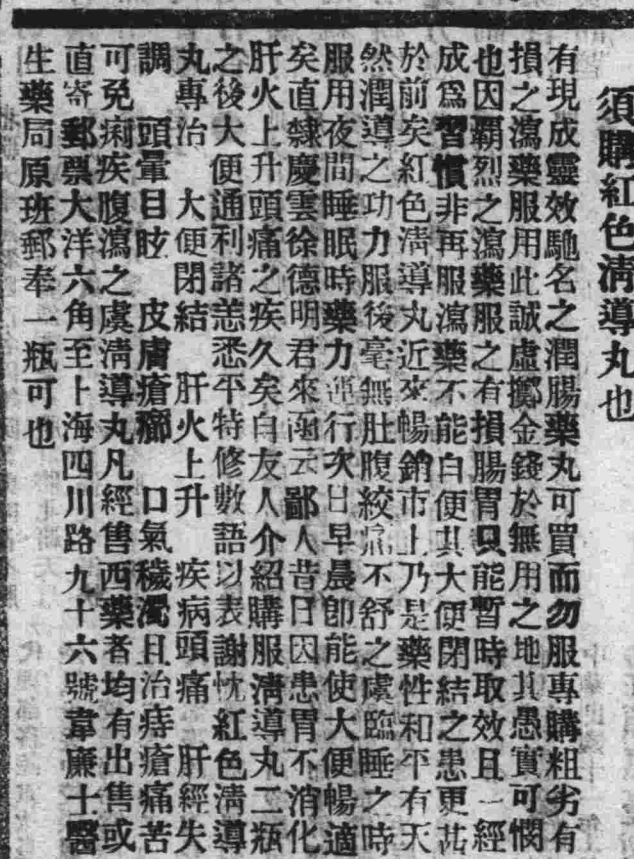 須購紅色清導丸也
有現成靈效馳名之潤腸藥丸可買而勿服專購粗劣有
損之瀉藥服用此誠虛擲金錢於無用之地其愚實可憫
也因霸烈之瀉藥服之有損腸胃只能暫時取效且一經
成爲習慣非再服瀉藥不能自便其大便閉結之患更甚
於前矣紅色清導丸近來暢銷市上乃是藥性和平有天
然潤導之功力服後毫無肚腹絞痛不舒之虞臨睡之時
服用夜間睡眠時藥力運行次日早晨卽能使大便暢適
矣直隸慶雲徐德明君來函云鄙人昔日因患胃不消化
肝火上升頭痛之疾久矣自友人介紹購服清導丸二瓶
之後大便通利諸恙悉平特修數語以表謝忱紅色清導
丸專治 大便閉結 肝火上升 疾病頭痛 肝經失
調 頭暈目眩 皮膚瘡癤 口氣穢濁且治痔瘡痛苦
可免痢疾腹瀉之虞清導丸凡經售西藥者均有出售或
直寄郵票大洋六角至上海四川路九十六號韋廉士醫
生藥局原班郵奉一瓶可也